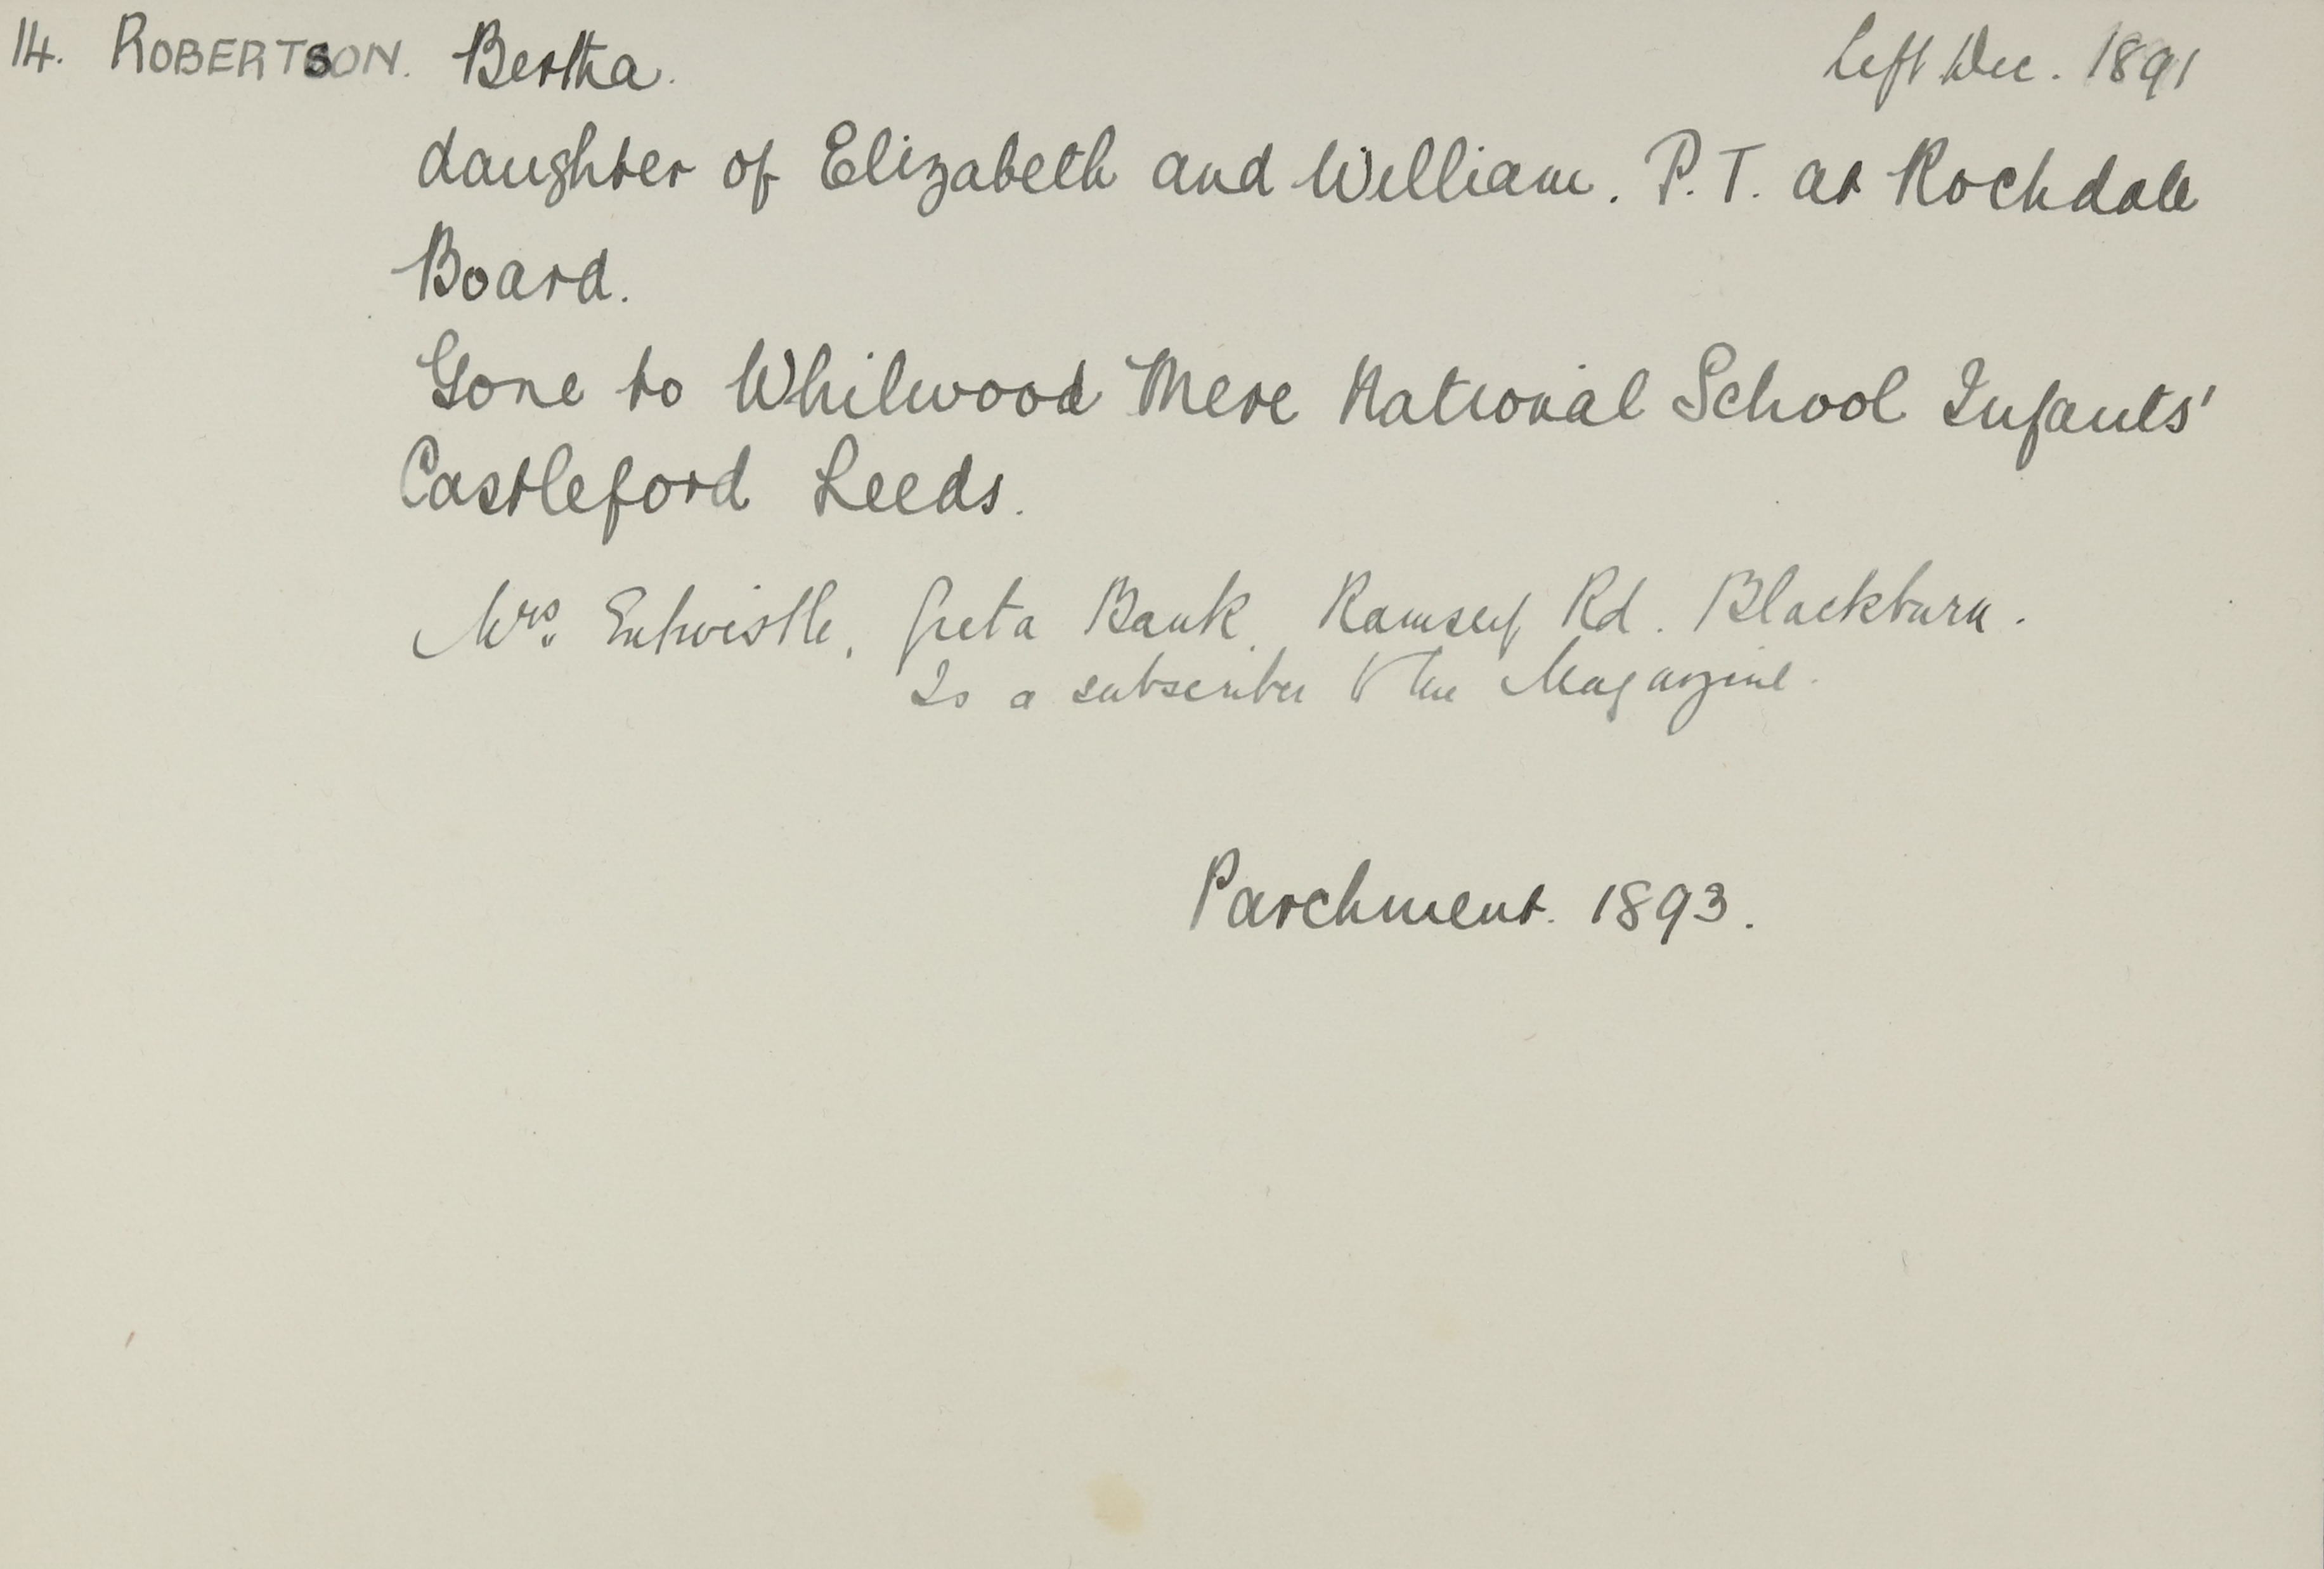 14. ROBERTSON. Bertha. Left Dec. 1891
daughter of Elizabeth and William. P.T. at Rochdale
Board.
Gone to Whilwood Mere National School Infants'
Castleford Leeds.
Mrs. Entwistle, Greta Bank, Ramsey Rd. Blackburn.
Is a subscriber to the Magazine.
Parchment. 1893.